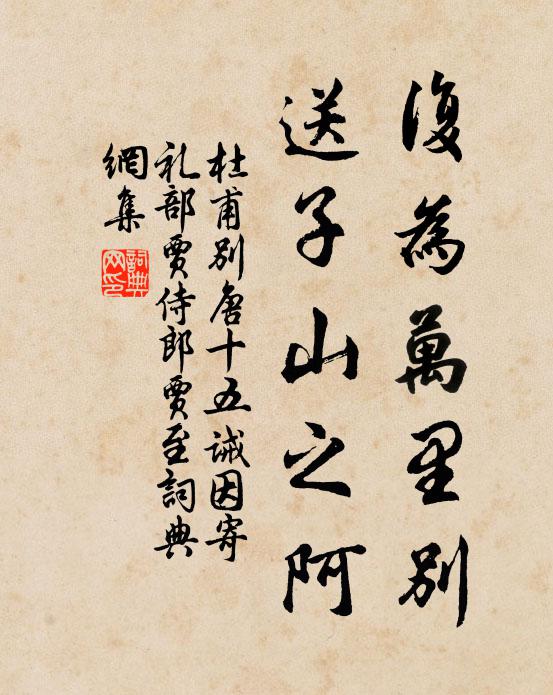 復為萬里別
送子山之阿
杜甫別唐十五誡因寄
礼部賈侍郎賈至詞典
網集
詞典
网印